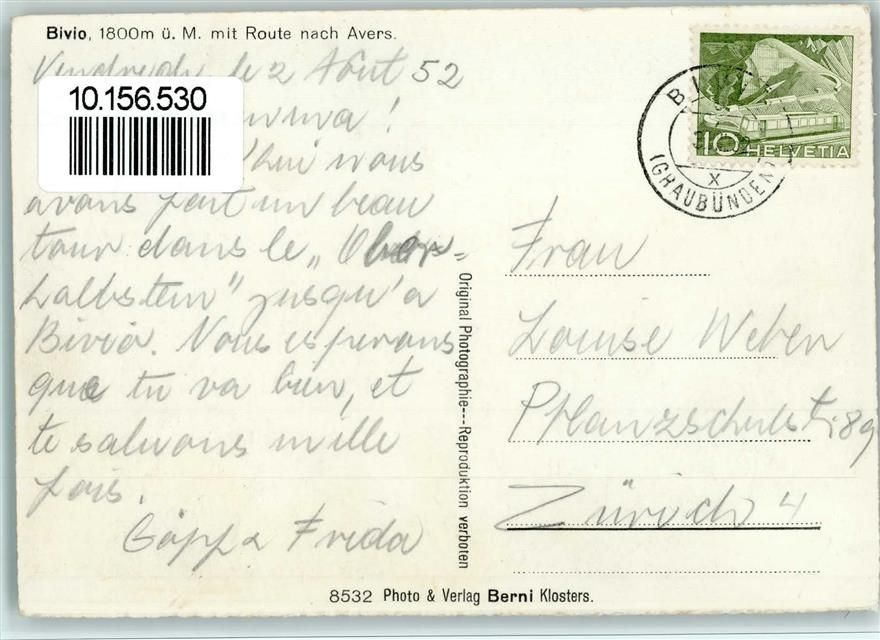 Bivio, 1800m ü. M. mit Route nach Avers.
Vendredi le 2 Août 52
10.156.530
!
'hui nous
avons fait un beau
tour dans le „Ober=
halbstein" jusqu'à
Bivio. Nous esperons
que tu va bien, et
te saluons mille
fois.
Göpf & Frida
Original Photographie---Reproduktion verboten
BIVIO
(GRAUBÜNDEN)
X
10 HELVETIA
Frau
Louise Weber
Pflanzschulstr. 89
Zürich 4
8532 Photo & Verlag Berni Klosters.